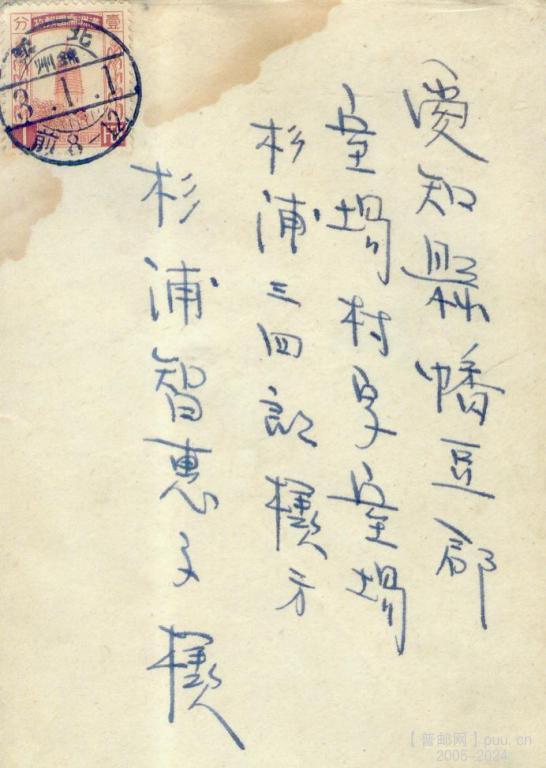 愛知縣幡豆郡
室場村字室場
杉浦三四郎樣方
杉浦智惠子樣
分 壹
錦州
北
.1.1
前8-12
【普邮网】puu.cn
2005-2024